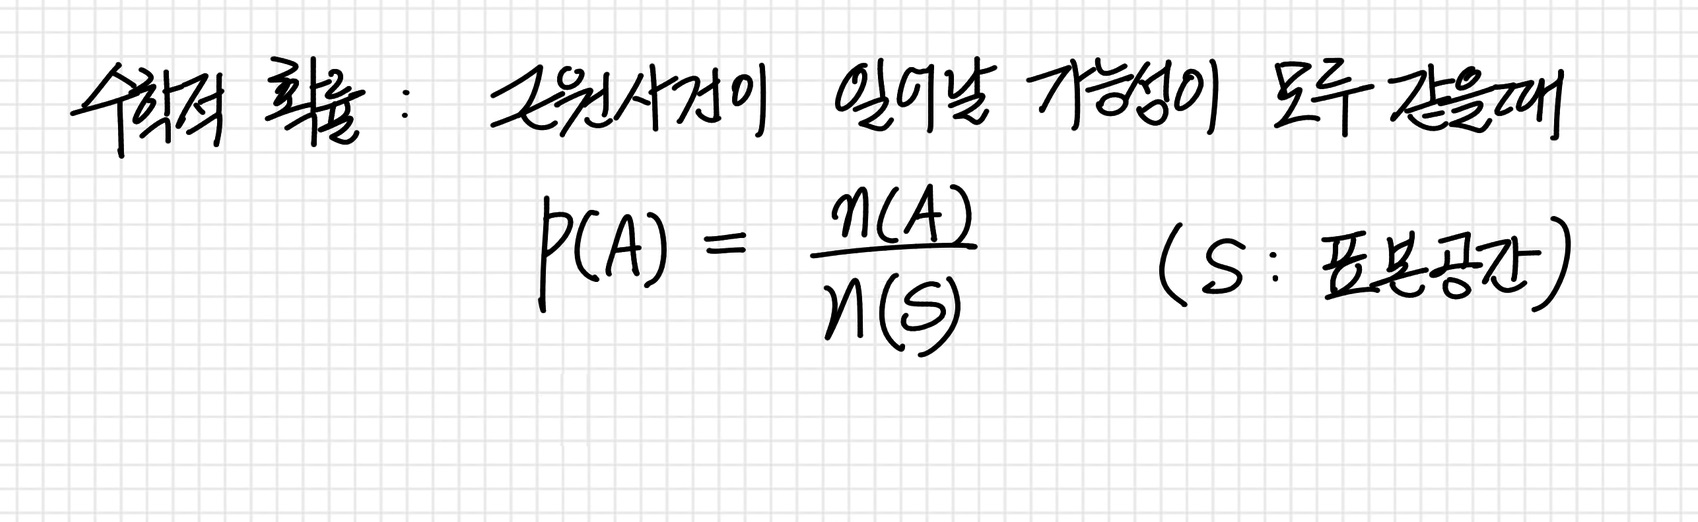 수학적 확률 : 근원사건이 일어날 가능성이 모두 같을때
P(A) = n(A)/n(S) (S : 표본공간)